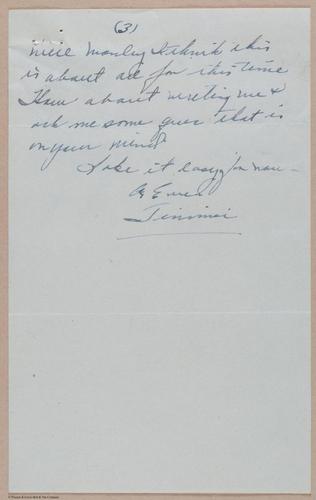 (3)
Well Manley I think this
is about all for this time
How about writing me &
ask me some ques that is
on your mind
Take it easy for now -
As Ever
Jimmie